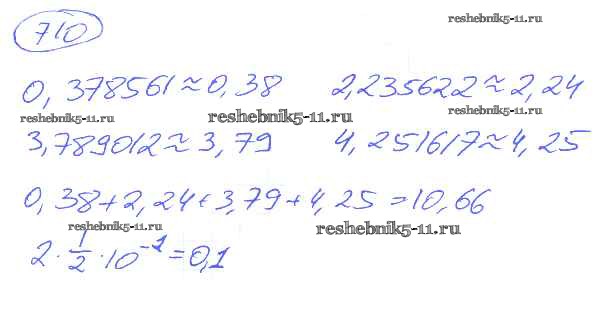 710
reshebnik5-11.ru
0,378561≈0,38 2,235622≈2,24
reshebnik5-11.ru reshebnik5-11.ru reshebnik5-11.ru
3,789012≈3,79 4,251617≈4,25
0,38+2,24+3,79+4,25=10,66
reshebnik5-11.ru reshebnik5-11.ru
2·1/2·10⁻¹=0,1